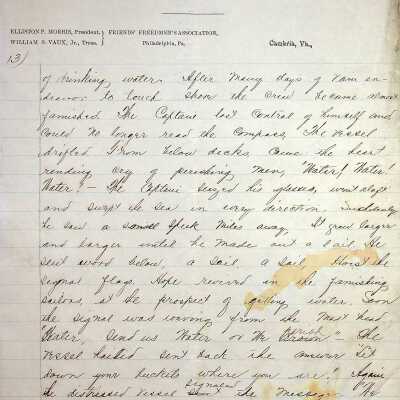 ELLISTON P. MORRIS, President.
WILLIAM S. VAUX, Jr., Treas.
FRIENDS' FREEDMEN'S ASSOCIATION,
Philadelphia, Pa.
Cambria, Va.,
13)
of drinking water. After many days of vain en-
deavor to touch shore the crew became almost
famished The Captain lost control of himself and
could no longer read the compass, The vessel
drifted. From below decks, came the heart
rending cry of perishing men, "Water! Water!
Water! - The Captain seized his glasses, went aloft
and swept the sea in every direction. Suddenly
he saw a small speck miles away, It grew larger
and larger until he made out a sail. He
sent word below, a sail, a sail, Hoist the
signal flags. Hope revived in the famishing
sailors, at the prospect of getting water. Soon
the signal was waving from the mast head
Water, send us Water or We perish" - The
vessel hailed sent back the answer "Let
down your buckets where you are." Again
the distressed vessel signaled the message. We